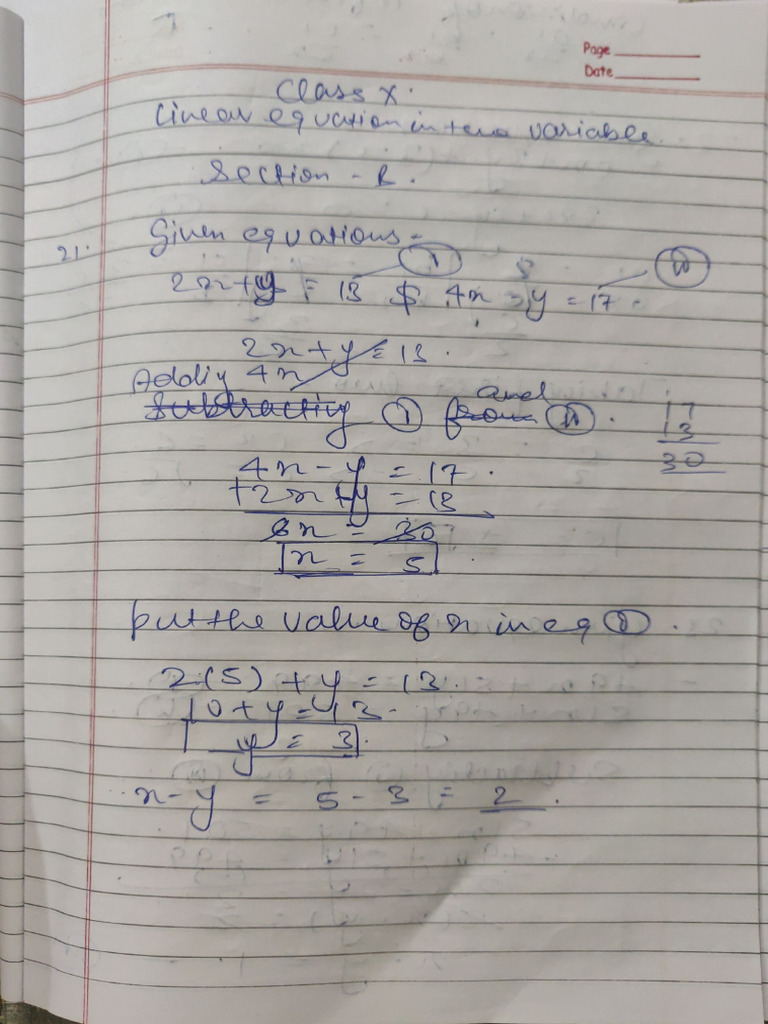 Page
Date
Class X.
Linear equation in two variable
Section - B.
21. Given equations -
2x + y = 13 & 4x - y = 17.
2x + y = 13.
Adding 4x
Subtracting I from and II.
17
13
30
4x - y = 17.
+2x + y = 13
6x = 30
x = 5
put the value of x in eq I.
2(5) + y = 13.
10 + y = 13.
y = 3.
x - y = 5 - 3 = 2.